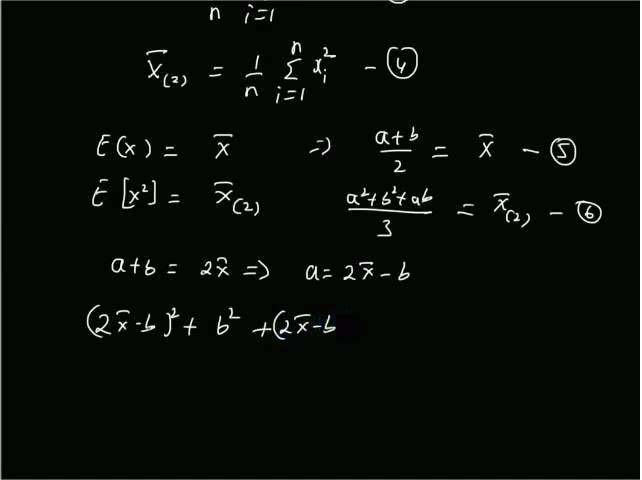 n i=1
x̄₍₂₎ = 1/n Σⁿᵢ₌₁ xᵢ² – ④
E(x) = x̄ ⇒ (a+b)/2 = x̄ – ⑤
E[x²] = x̄₍₂₎ (a²+b²+ab)/3 = x̄₍₂₎ – ⑥
a+b = 2x̄ ⇒ a = 2x̄ – b
(2x̄-b)² + b² + (2x̄-b